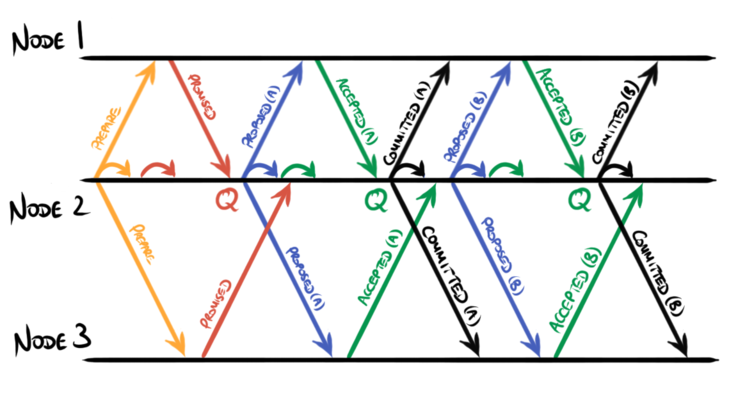 NODE 1
PREPARE
PROMISED
PROPOSED (A)
ACCEPTED (A)
COMMITTED (A)
PROPOSED (B)
ACCEPTED (B)
COMMITTED (B)
NODE 2
Q
Q
Q
PREPARE
PROMISED
PROPOSED (A)
ACCEPTED (A)
COMMITTED (A)
PROPOSED (B)
ACCEPTED (B)
COMMITTED (B)
NODE 3